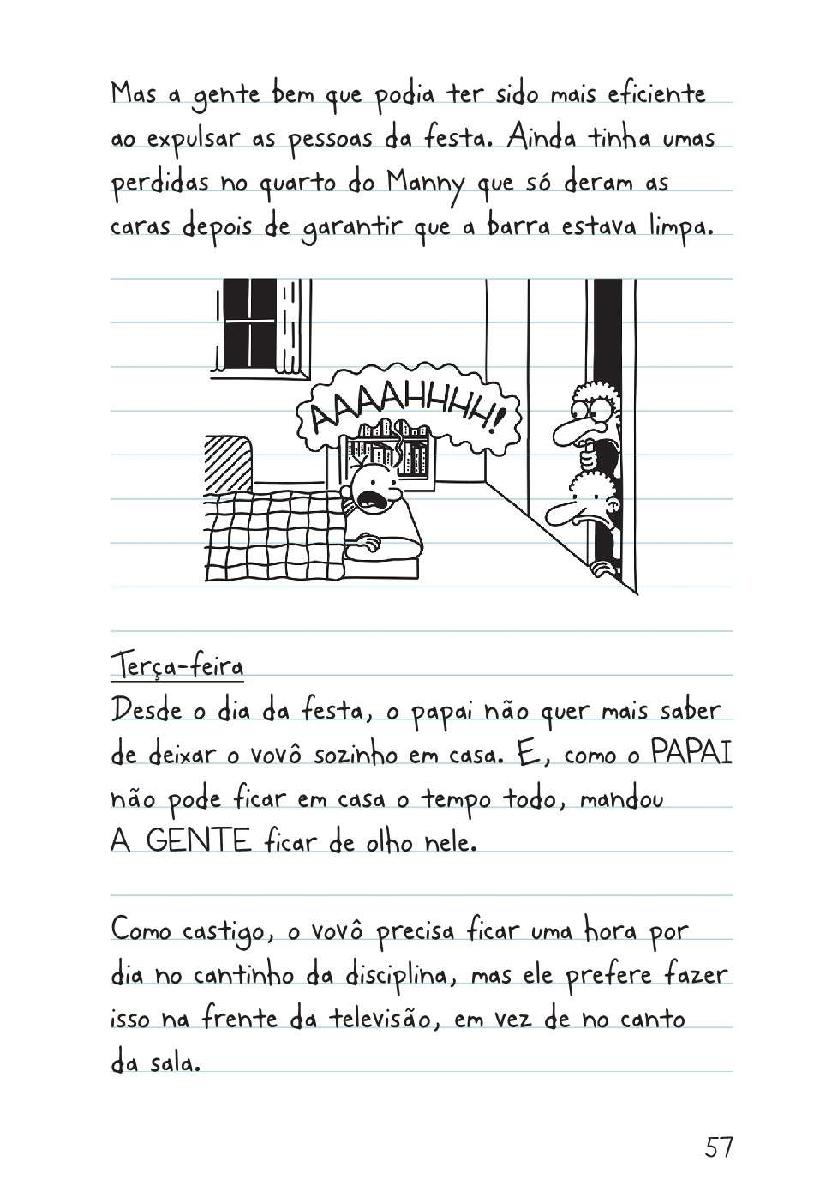 Mas a gente bem que podia ter sido mais eficiente
ao expulsar as pessoas da festa. Ainda tinha umas
perdidas no quarto do Manny que só deram as
caras depois de garantir que a barra estava limpa.
AAAAHHHH!
Terça-feira
Desde o dia da festa, o papai não quer mais saber
de deixar o vovô sozinho em casa. E, como o PAPAI
não pode ficar em casa o tempo todo, mandou
A GENTE ficar de olho nele.
Como castigo, o vovô precisa ficar uma hora por
dia no cantinho da disciplina, mas ele prefere fazer
isso na frente da televisão, em vez de no canto
da sala.
57